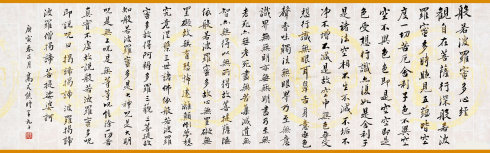 般若波羅蜜多心經
觀自在菩薩行深般若波
羅蜜多時照見五蘊皆空
度一切苦厄舍利子色不異空
空不異色色即是空空即是
色受想行識亦復如是舍利子
是諸法空相不生不滅不垢不
淨不增不減是故空中無色無受
想行識無眼耳鼻舌身意無色
聲香味觸法無眼界乃至無意
識界無無明亦無無明盡乃至無
老死亦無老死盡無苦集滅道無
智亦無得以無所得故菩提薩埵
依般若波羅蜜多故心無罣礙無
罣礙故無有恐怖遠離顛倒夢想
究竟涅槃三世諸佛依般若波羅
蜜多故得阿耨多羅三藐三菩提故
知般若波羅蜜多是大神呪是大明
呪是無上呪是無等等呪能除一切苦
真實不虛故說般若波羅蜜多呪
即說呪曰揭諦揭諦波羅揭諦
波羅僧揭諦菩提薩婆訶